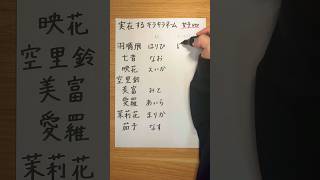 実在するキラキラネーム
はりひ
七音 なお
映花 えいか
空里鈴
美富 みと
愛羅 あいら
茉莉花 まりか
茄子 なす
映花
空里鈴
美富
愛羅
茉莉花